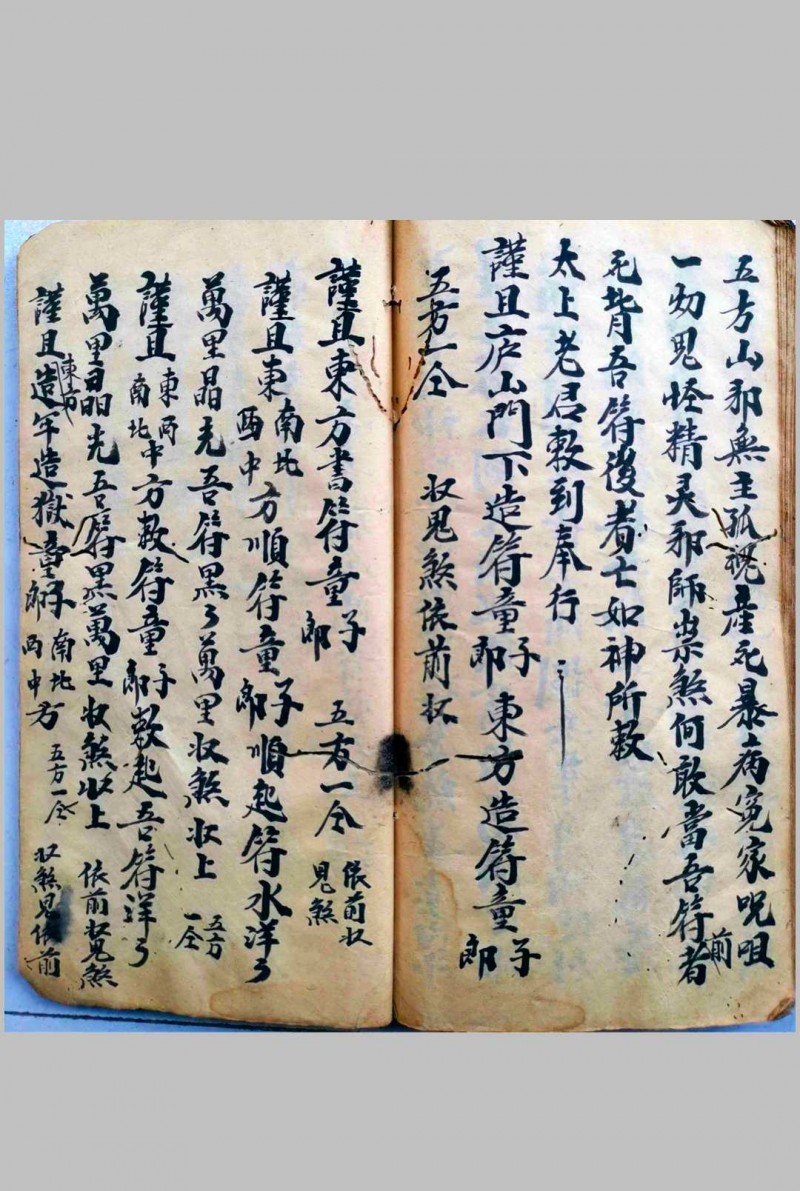 五方山邪無主孤魂産死暴病冤家呪咀
一切鬼怪精灵邪師出禁煞何敢當吾符前者
死背吾符後者亡如神所敕
太上老君敕到奉行
謹且庐山門下造符童子郎東方造符童子郎
五方一仝 收鬼煞依前收
謹且東方書符童子郎 五方一仝 依前收鬼煞
謹且東南西北中方順符童子郎順起符水洋々
萬里晶光吾符黑々萬里收煞收上 五方一仝
謹且東西南北中方敕符童子郎敕起吾符洋々
萬里晶光吾符黑萬里收煞收上 依前收鬼煞
謹且東方造牢造獄童子郎南北西中方 五方一仝 收煞鬼依前